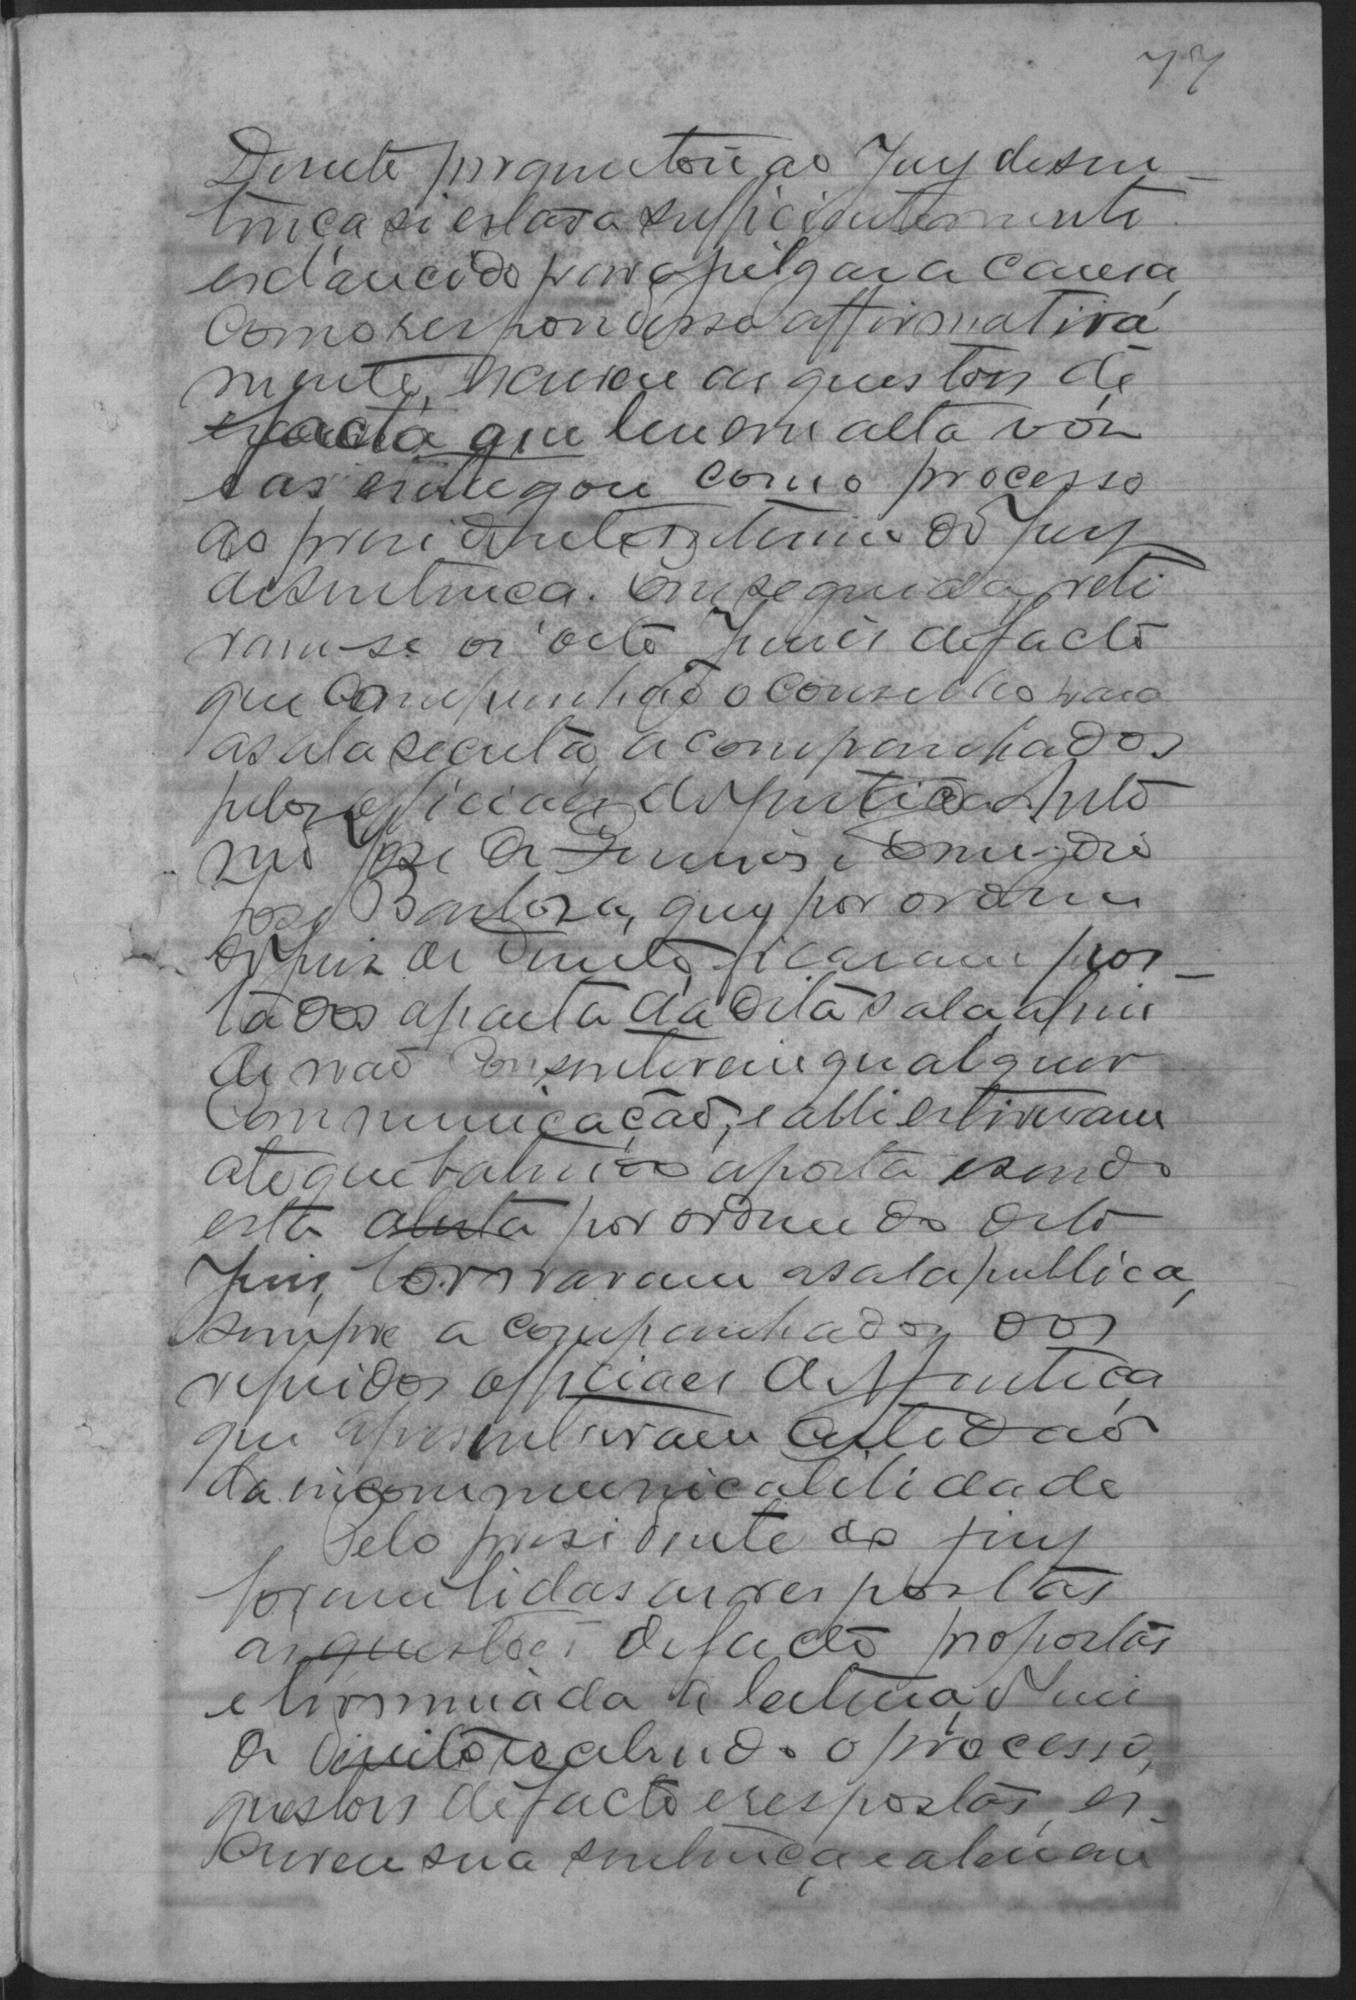 77
Direito perguntou ao Jury de sen-
tença si estava sufficientemente
esclarecido para julgar a causa,
Como respondesse affirmativa
mente, escreveu as questões de
facto que leu em alta vóz
e as entregou com o processo
ao presidente interino do Jury
de sentença. Em seguida reti
ram-se os oito Juizes de facto
que compunhão o conselho para
a sala secreta, acompanhados
pelos officiaes de justiça Anto
nio José de
José Barbosa, que por ordem
do Juiz de Direito, ficaram pos-
tados a porta da dita sala, afim
de não consentirem qualquer
Communicação, e alli estiveram
até que baterão a porta e sendo
esta aberta por ordem do dito
Juiz, tornaram a sala publica,
sempre acompanhados dos
referidos officiaes de Justiça
que apresentaram certidão
da incommunicabilidade
Pelo presidente do jury
foram lidas as respostas
as questões de facto propostas
e terminada a leitura, o Juiz
de Direito recebendo o processo,
questões de facto e respostas, es-
creveu sua sentença e a leu em